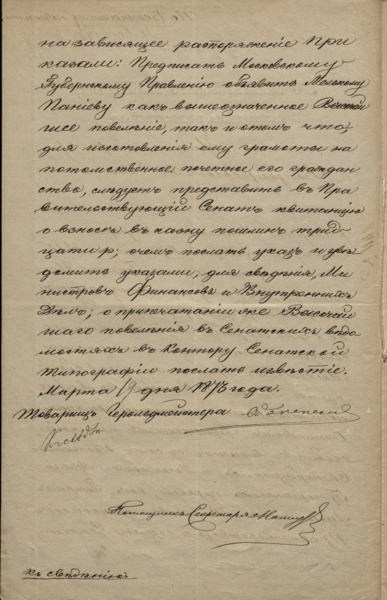 на зависящее распоряженіе При
казали: Предписать Московскому
Губернскому Правленію объявить
Паніеву какъ вышеозначенное Высочай
шее повелѣніе, такъ и о томъ что
для изготовленія ему грамоты на
потомственное почетное его граждан
ство, слѣдуетъ представить въ Пра
вительствующій Сенатъ квитанцію
о взносѣ въ казну пошлинъ трид
цати р; о чемъ послать указъ и увѣ
домить указами, для свѣденія, Ми
нистровъ Финансовъ и Внутреннихъ
Дѣлъ; о припечатаніи же Высочай
шаго повелѣнія въ Сенатскихъ вѣдо
мостяхъ въ Контору Сенатской
типографіи послать извѣстіе.
Марта 19 дня 1873 года.
Товарищъ Герольдмейстера
Помощникъ Секретаря
къ свѣденію